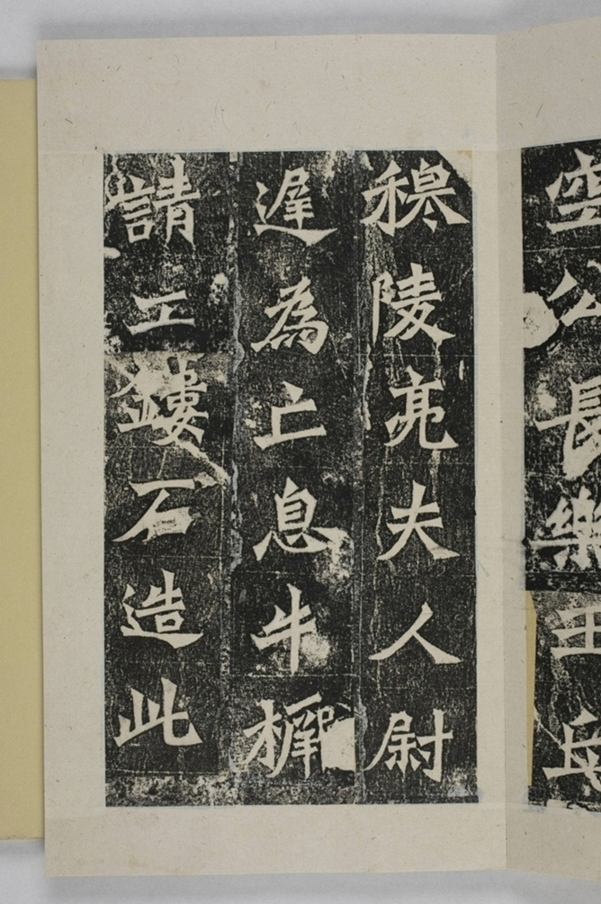 空公長樂王丘
穆陵亮夫人尉
遲為亡息牛橛
請工鏤石造此